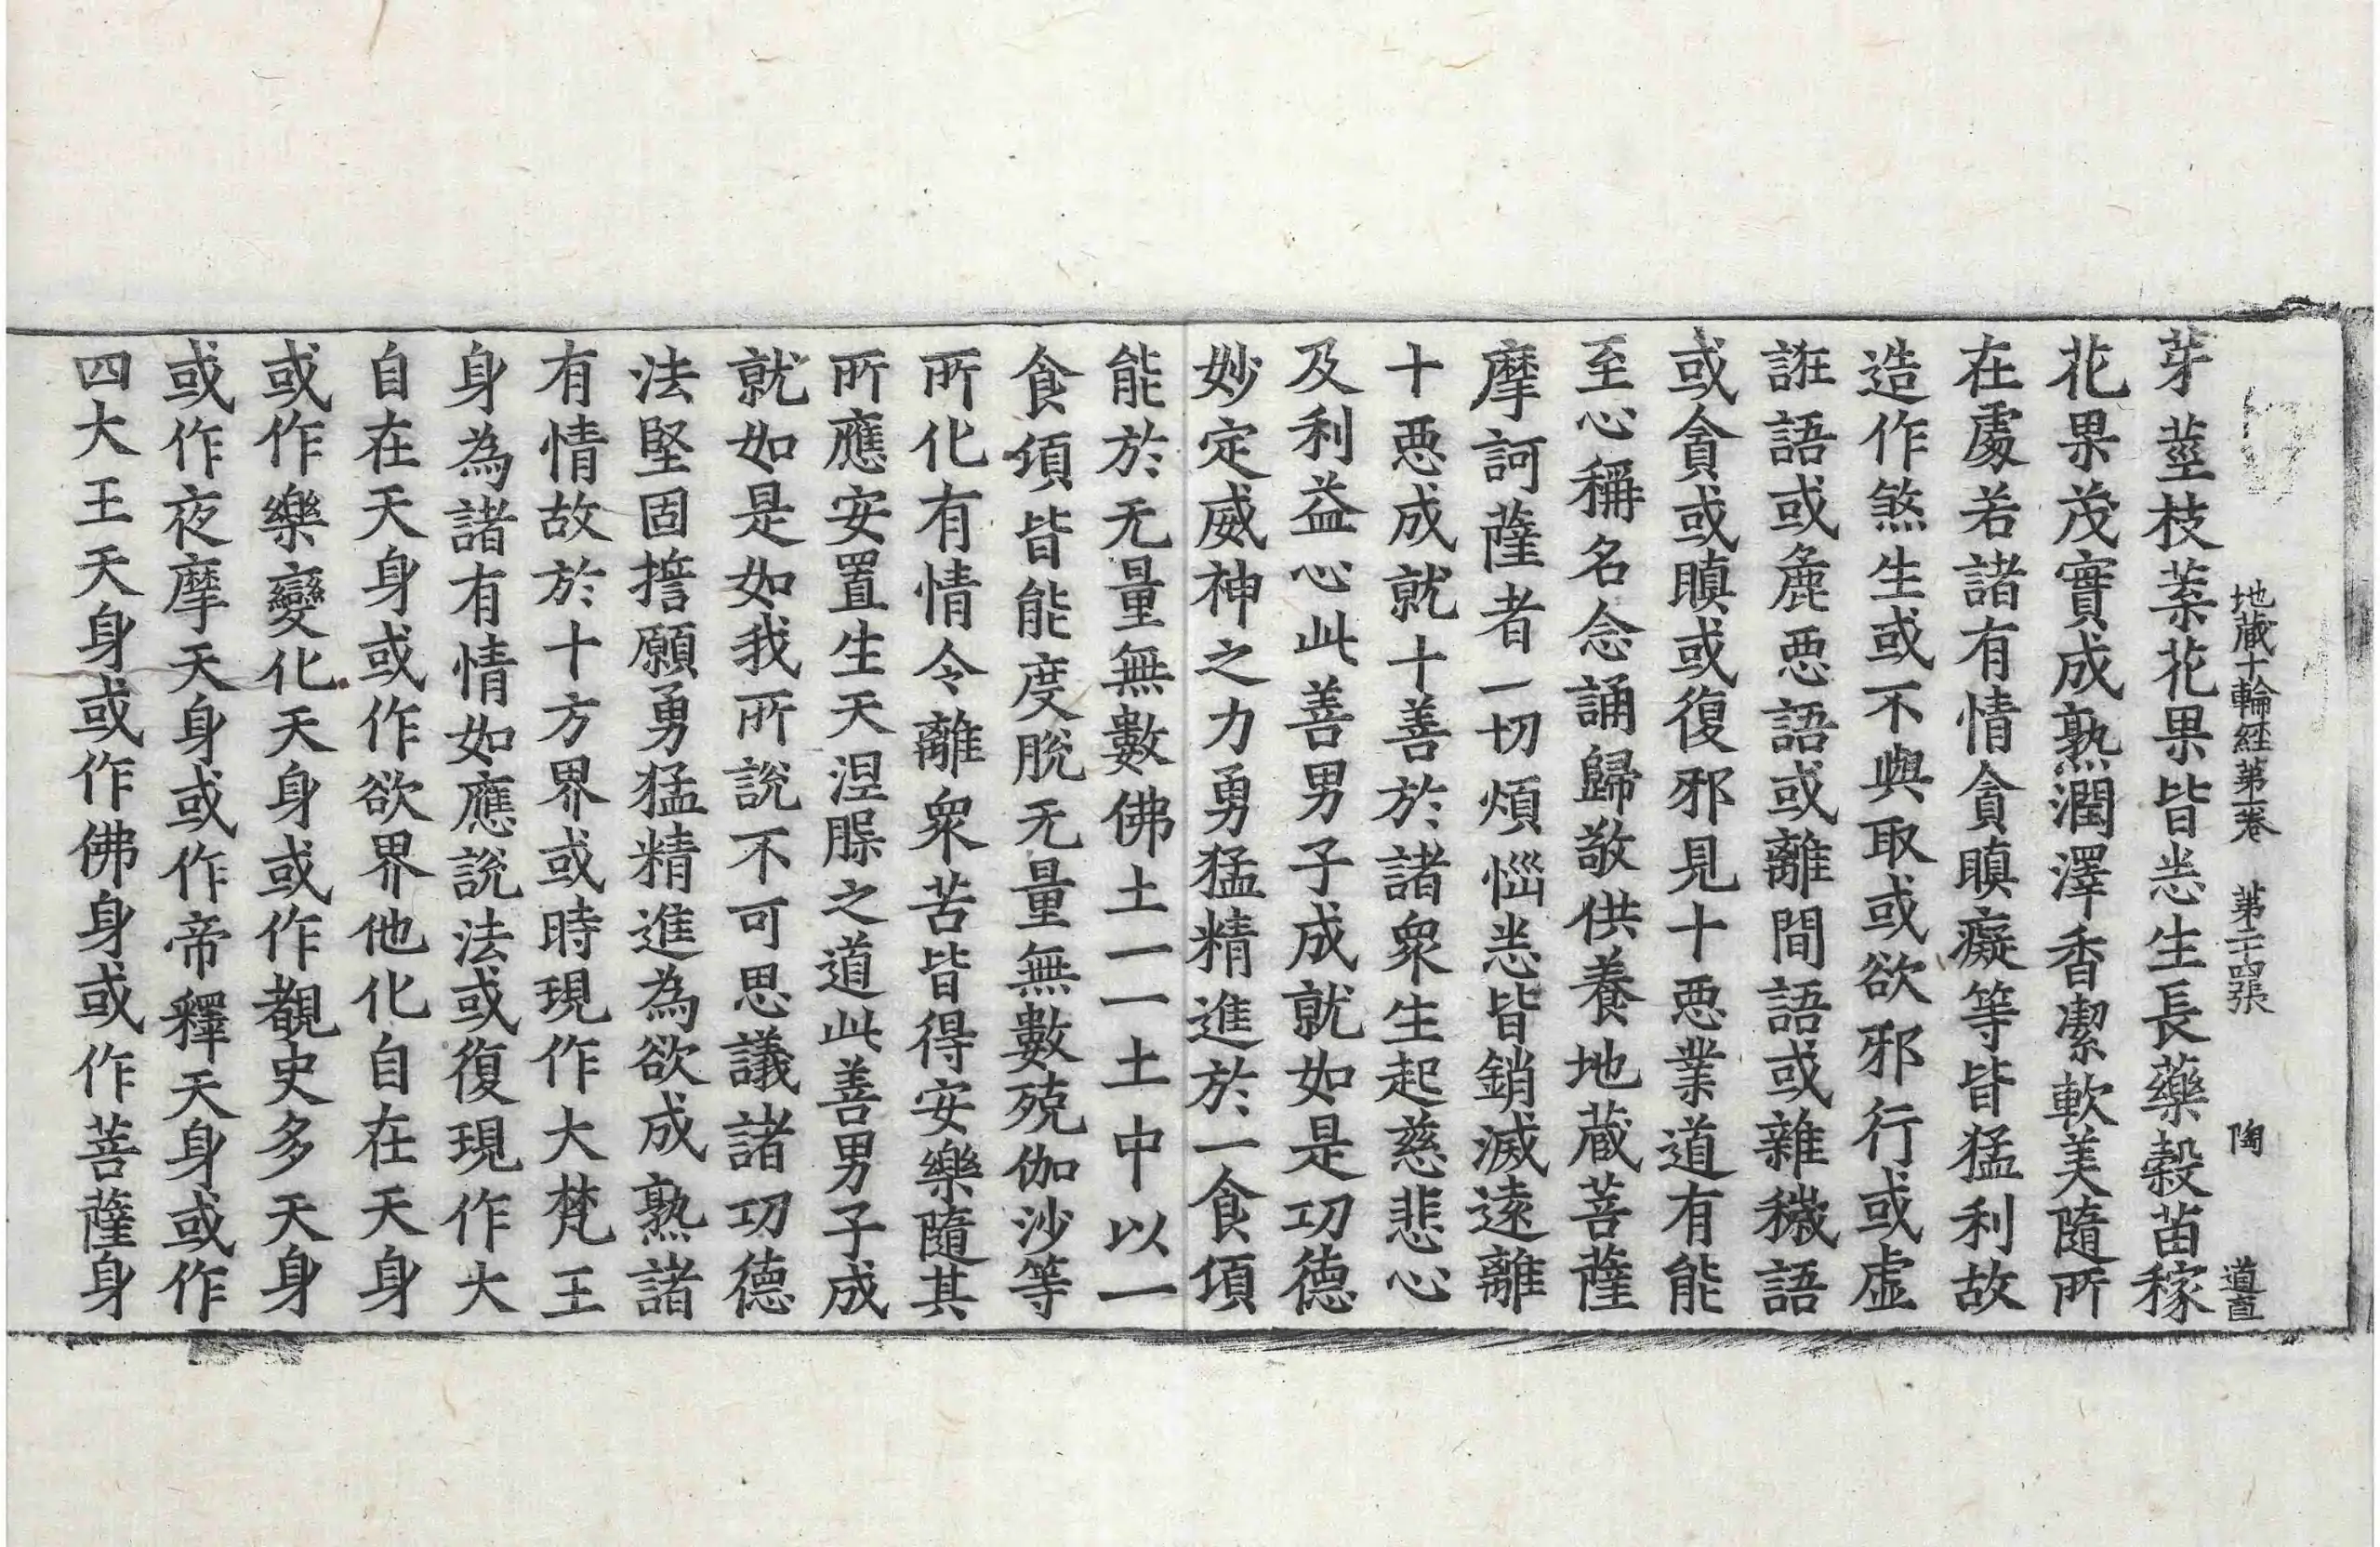 地藏十輪経苐一卷 苐二十四張 陶 道直
芽莖枝葉花果皆悉生長藥穀苗稼
花果茂實成熟潤澤香潔軟美隨所
在處若諸有情貪瞋癡等皆猛利故
造作煞生或不與取或欲邪行或虛
誑語或麁惡語或離間語或雜穢語
或貪或瞋或復邪見十惡業道有能
至心稱名念誦歸敬供養地藏菩薩
摩訶薩者一切煩惱悉皆銷滅遠離
十惡成就十善於諸衆生起慈悲心
及利益心此善男子成就如是功德
妙定威神之力勇猛精進於一食頃
能於无量無數佛土一一土中以一
食頃皆能度脫无量無數殑伽沙等
所化有情令離衆苦皆得安樂隨其
所應安置生天涅槃之道此善男子成
就如是如我所說不可思議諸功德
法堅固誓願勇猛精進為欲成熟諸
有情故於十方界或時現作大梵王
身為諸有情如應說法或復現作大
自在天身或作欲界他化自在天身
或作樂變化天身或作覩史多天身
或作夜摩天身或作帝釋天身或作
四大王天身或作佛身或作菩薩身